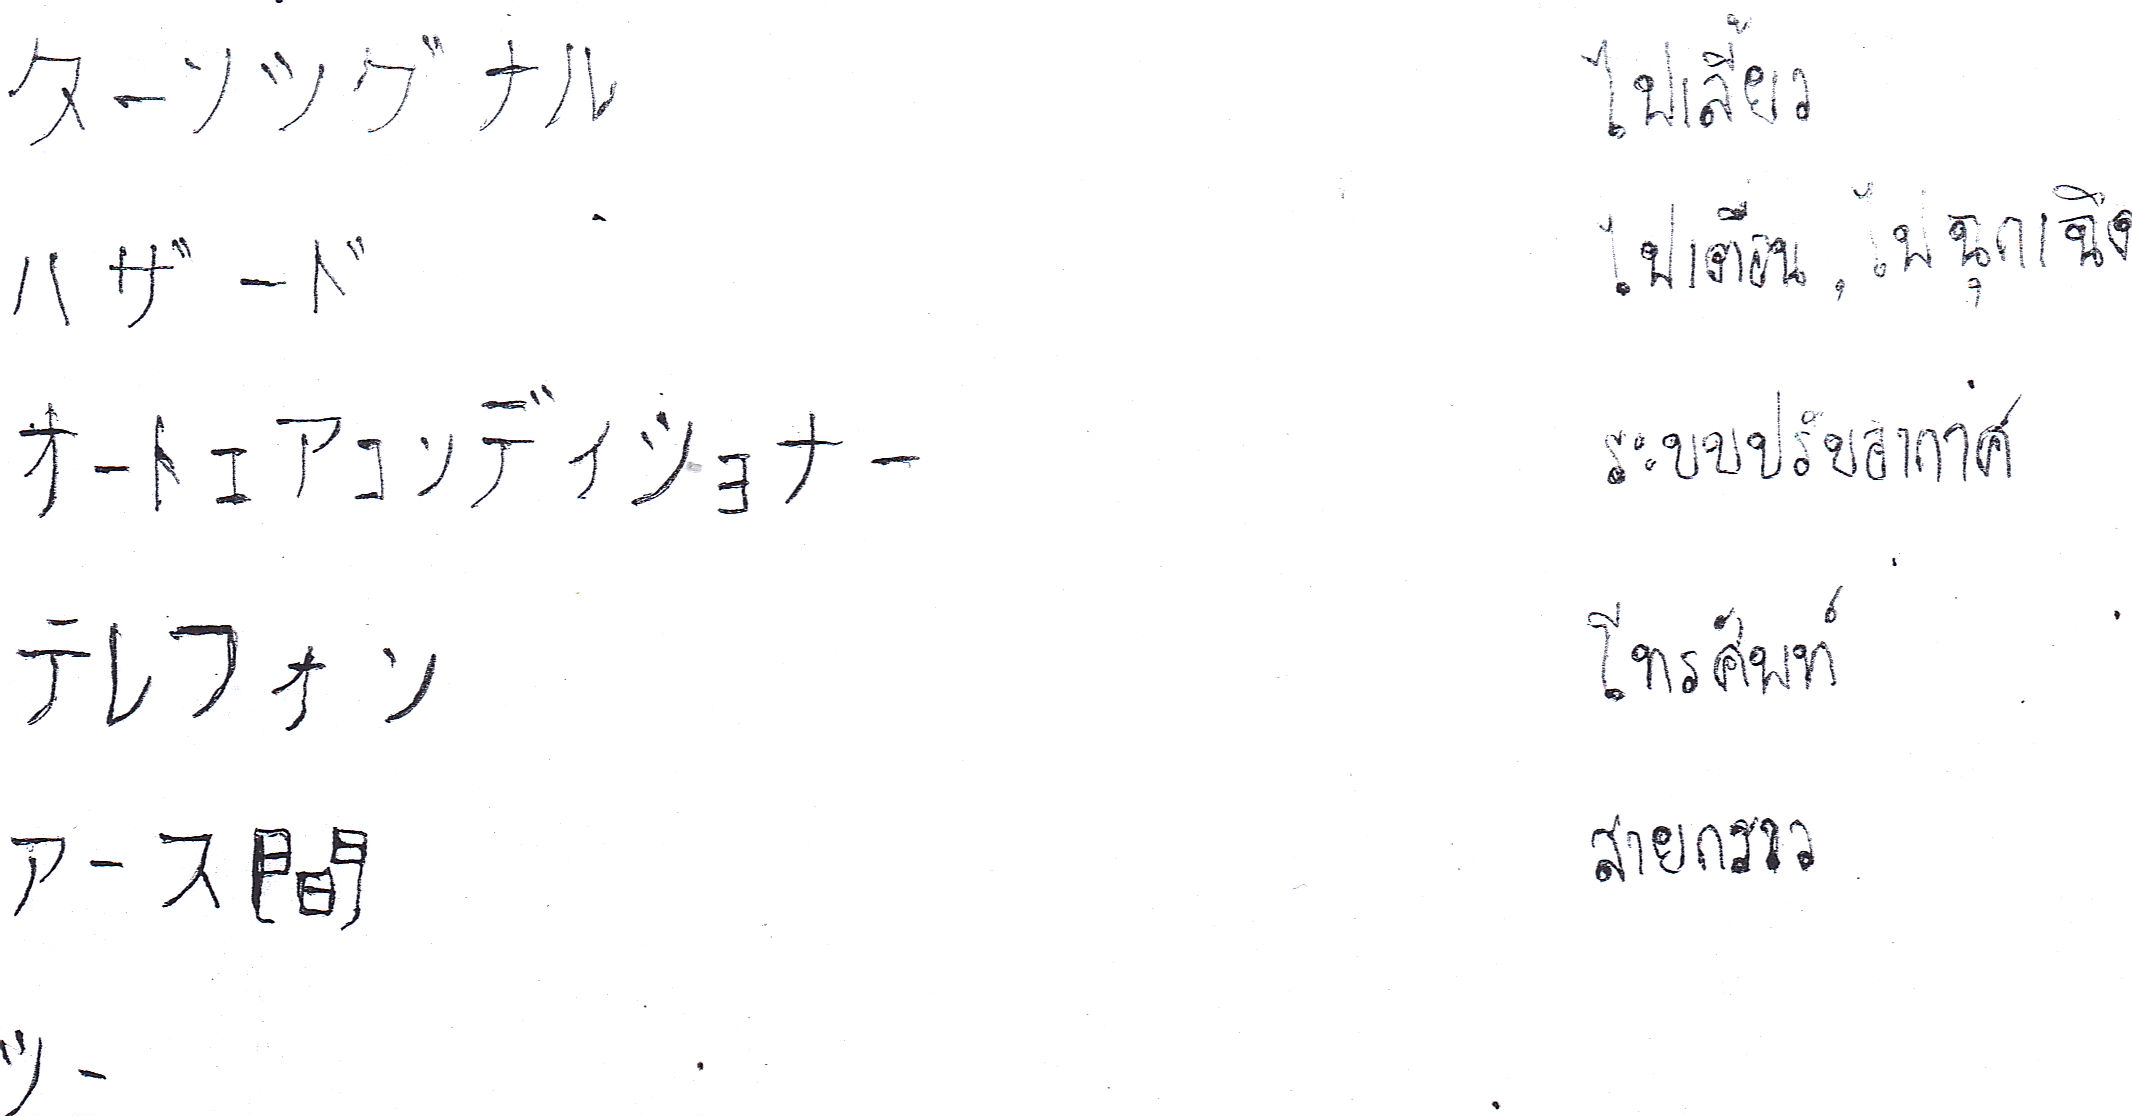 ターンシグナル ไฟเลี้ยว
ハザード ไฟเตือน, ไฟฉุกเฉิง
オートエアコンディショナー ระบบปรับอากาศ
テレフォン โทรศัพท์
アース間 สายกราว
ツー